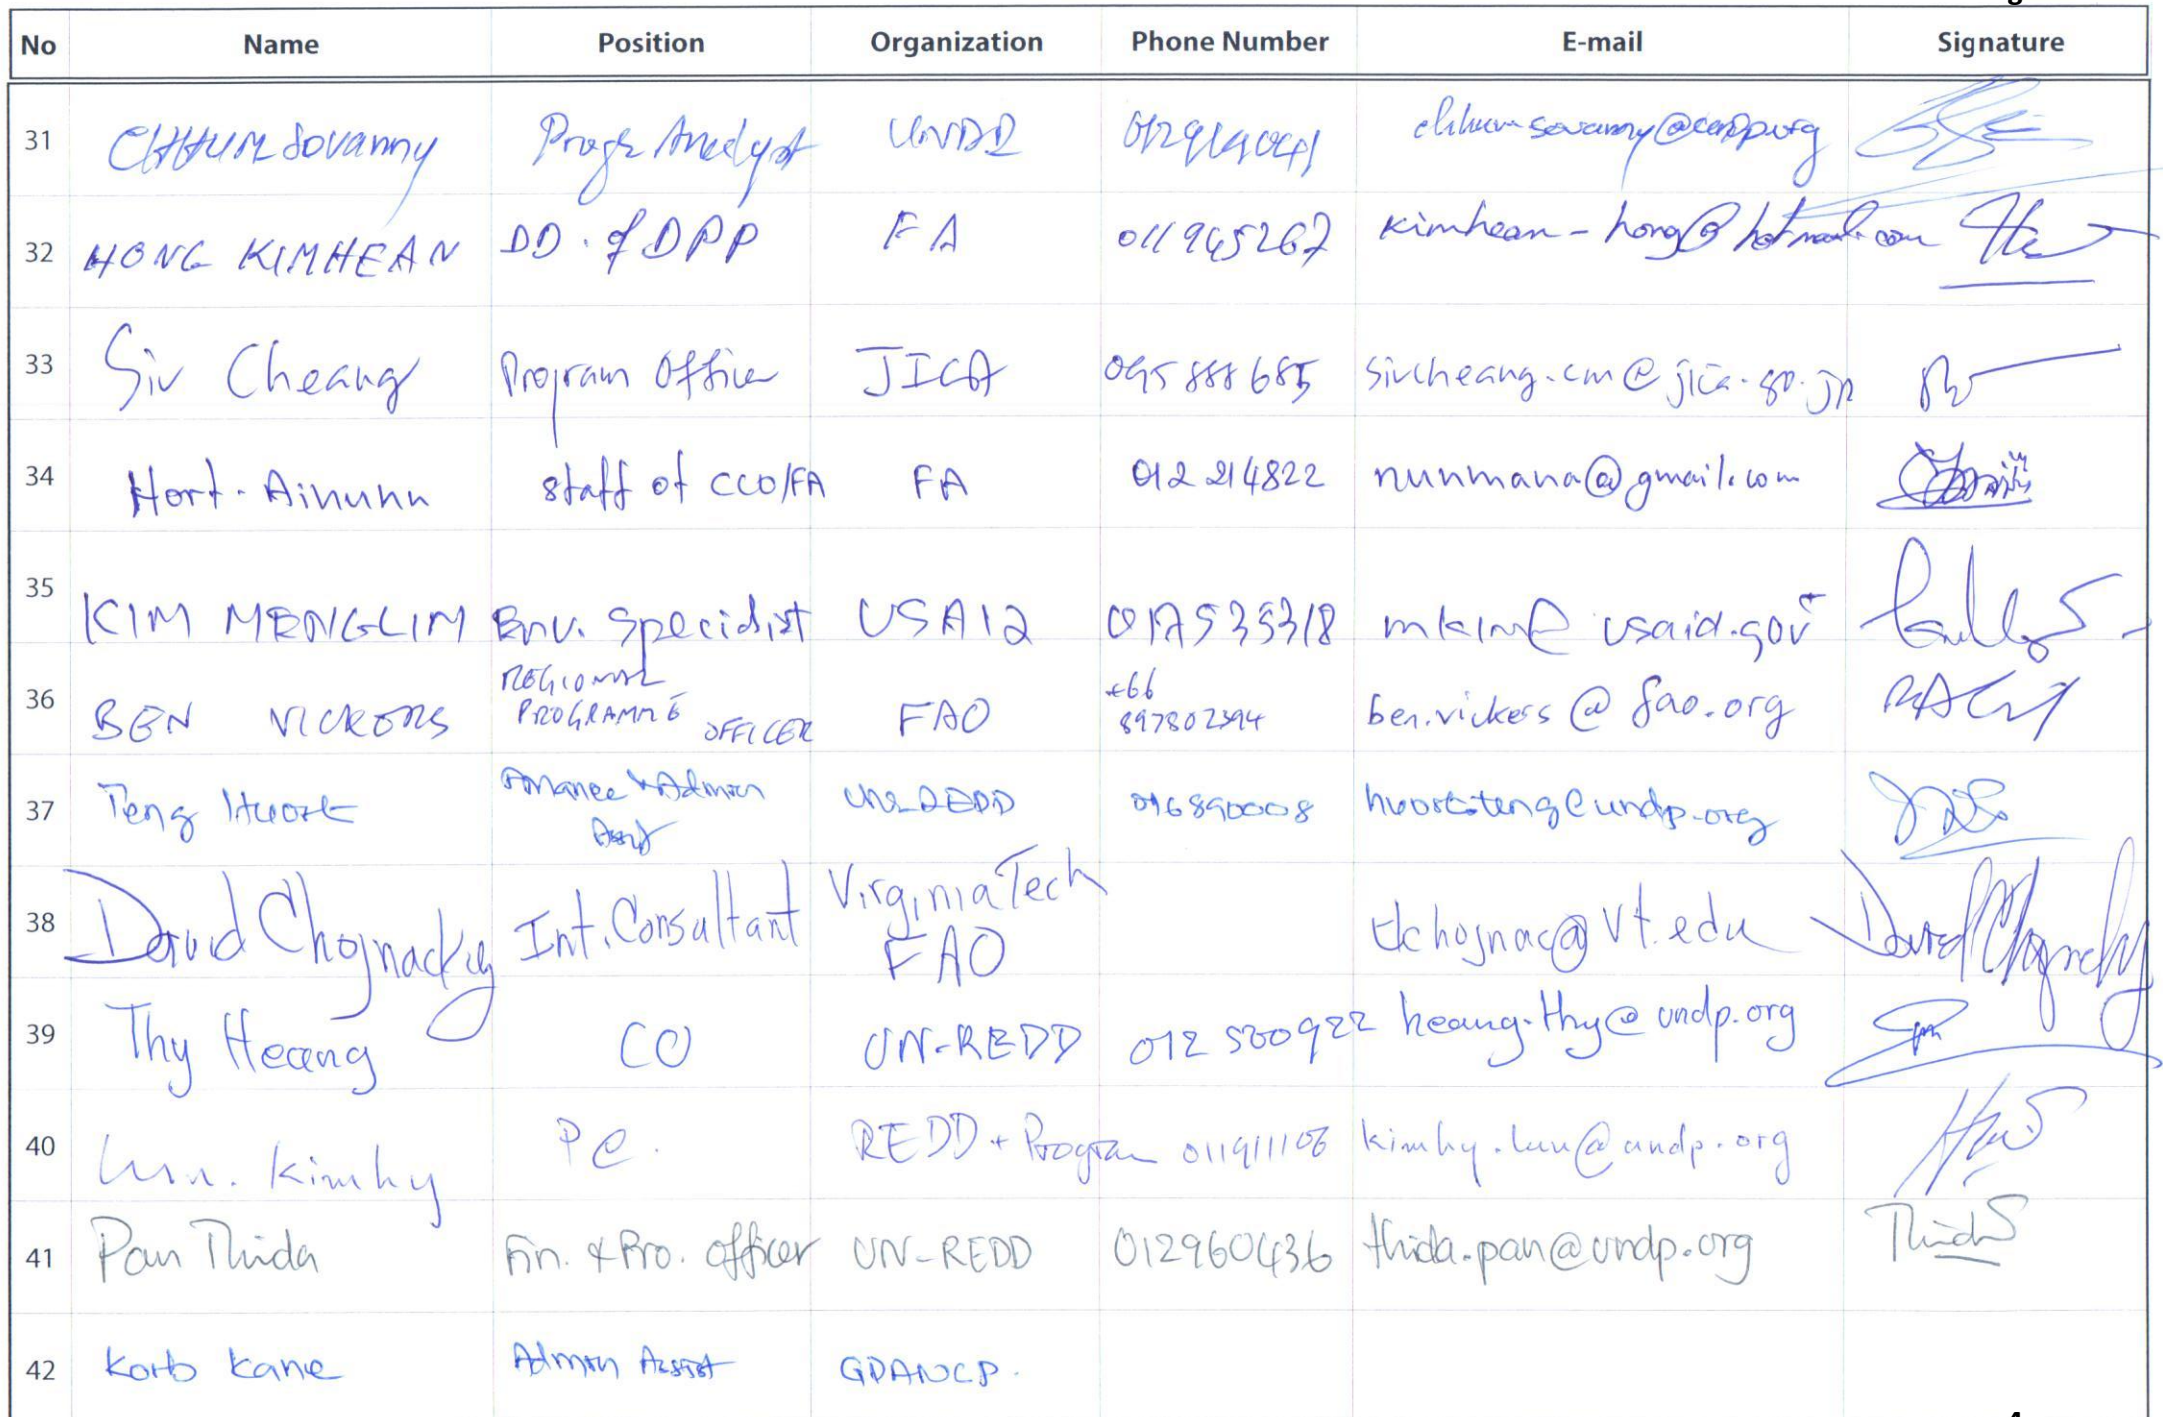 No Name Position Organization Phone Number E-mail Signature
31 CHHUM Sovanny Progr Analyst UNDP
32 HONG KIMHEAN DD. of DPP FA 011945267 kimhean-hong@hotmail.com
33 Siv Cheang Program Officer JICA 095 888 685 sivcheang.cm@jica.go.jp
34 Hort. Ainunn staff of CCO/FA FA 012 214822 nunmana@gmail.com
35 KIM MENGLIM Env. Specialist USAID 017535318 mkim@usaid.gov
36 BEN VICKERS REGIONAL PROGRAMME OFFICER FAO +66 897802394 ben.vickers@fao.org
37 Teng Huort Finance & Admin Asst UN-REDD 016890008 huort.teng@undp.org
38 David Chojnacky Int. Consultant Virginia Tech FAO dchojnac@vt.edu David Chojnacky
39 Thy Heang CO UN-REDD 012 500922 heang.thy@undp.org
40 Lun. Kimhy PC. REDD+ Program 011911106 kimhy.lun@undp.org
41 Pan Thida Fin. & Pro. officer UN-REDD 012960436 thida.pan@undp.org Thida
42 Korb Kanie Admin Assist GDANCP.